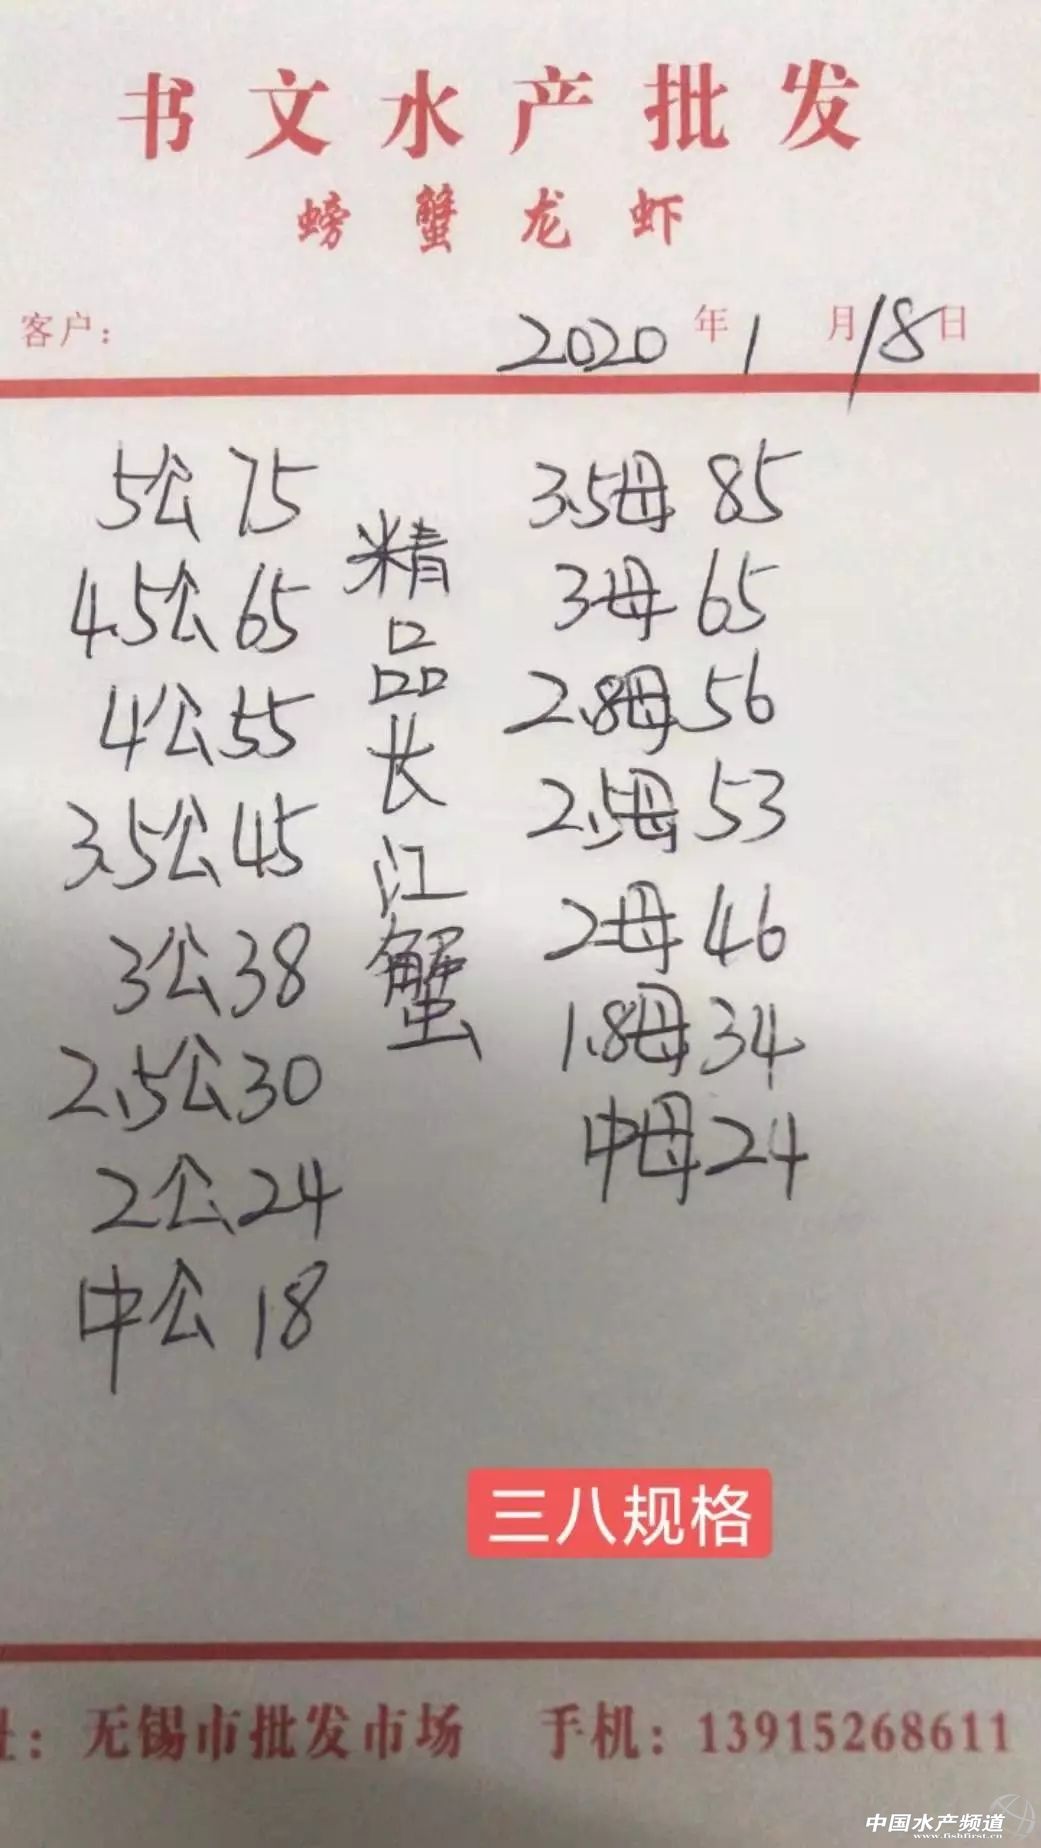 书文水产批发
螃蟹龙虾
客户：
2020年1月18日
5公75
4.5公65
4公55
3.5公45
3公38
2.5公30
2公24
中公18
精品长江蟹
3.5母85
3母65
2.8母56
2.5母53
2母46
1.8母34
中母24
三八规格
址：无锡市批发市场 手机：13915268611
中国水产频道
www.fishfirst.cn